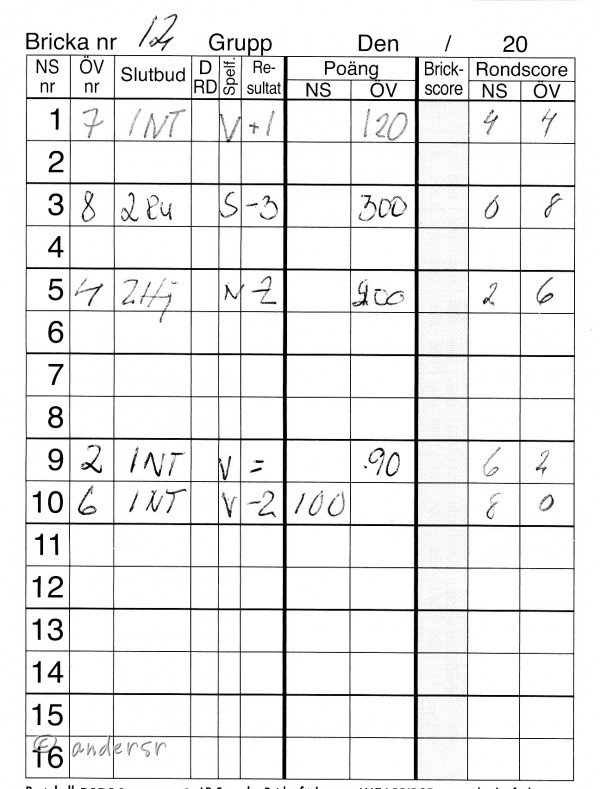 Bricka nr 12 Grupp Den / 20
NS nr ÖV nr Slutbud D RD Spelf. Re-sultat Poäng NS ÖV Brick-score Rondscore NS ÖV
1 7 1NT V +1 120 4 4
2
3 8 2Ru S -3 300 0 8
4
5 4 2Hj N -2 200 2 6
6
7
8
9 2 1NT V = 90 6 2
10 6 1NT V -2 100 8 0
11
12
13
14
15
16
© andersr